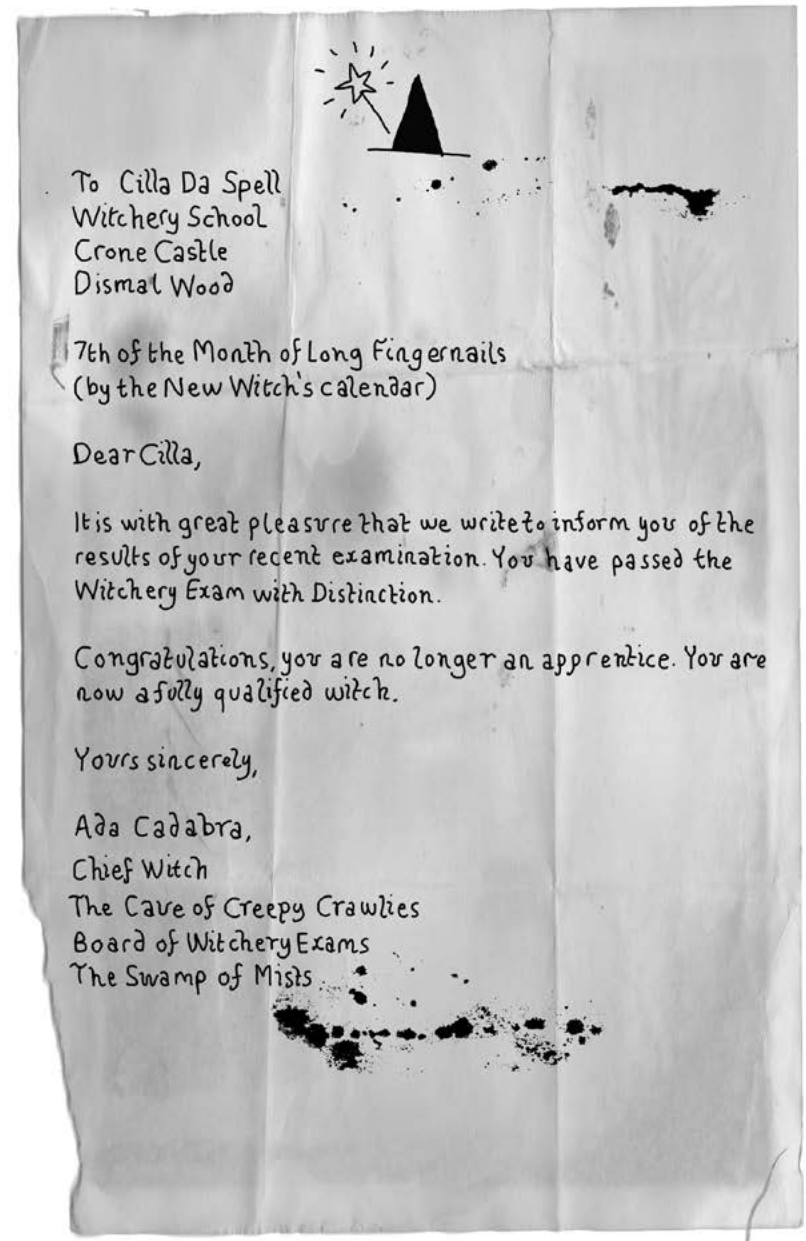 To Cilla Da Spell
Witchery School
Crone Castle
Dismal Wood
7th of the Month of Long Fingernails
(by the New Witch's calendar)
Dear Cilla,
It is with great pleasure that we write to inform you of the
results of your recent examination. You have passed the
Witchery Exam with Distinction.
Congratulations, you are no longer an apprentice. You are
now a fully qualified witch.
Yours sincerely,
Ada Cadabra,
Chief Witch
The Cave of Creepy Crawlies
Board of Witchery Exams
The Swamp of Mists